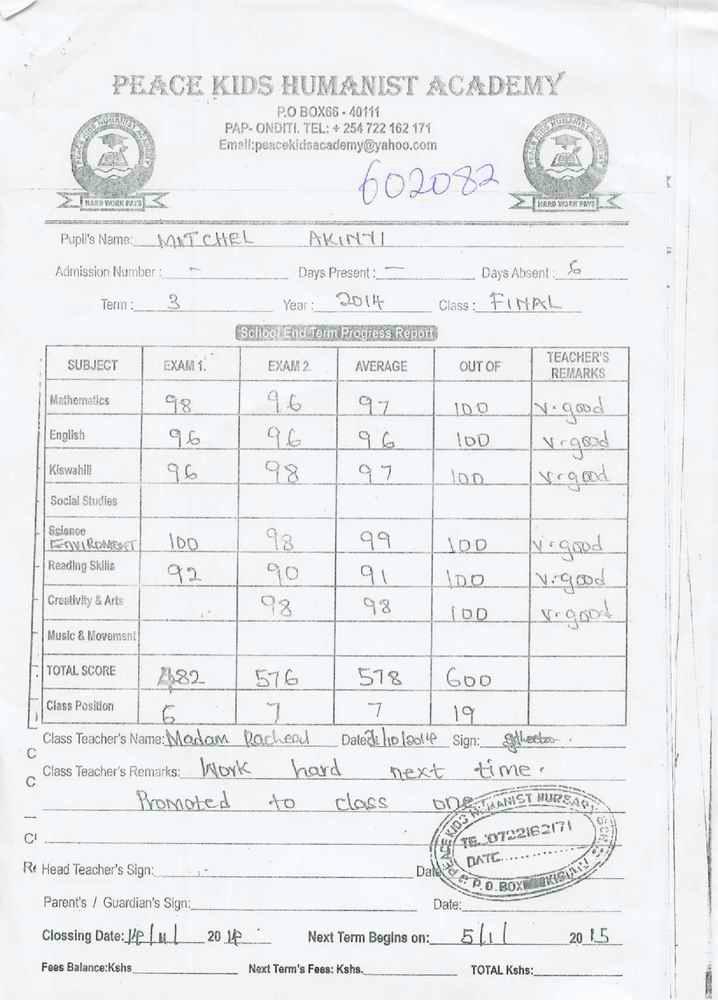 PEACE KIDS HUMANIST ACADEMY
P.O BOX66 - 40111
PAP- ONDITI. TEL: + 254 722 162 171
Email:peacekidsacademy@yahoo.com
HARD WORK PAYS
HARD WORK PAYS
602082
Pupil's Name: MITCHEL AKINYI
Admission Number : - Days Present : - Days Absent : 6
Term : 3 Year : 2014 Class : FINAL
School End Term Progress Report
SUBJECT EXAM 1. EXAM 2. AVERAGE OUT OF TEACHER'S REMARKS
Mathematics 98 96 97 100 V.good
English 96 96 96 100 V.good
Kiswahili 96 98 97 100 V.good
Social Studies
Science ENVIROMENT 100 98 99 100 V.good
Reading Skills 92 90 91 100 V.good
Creativity & Arts 98 98 100 V.good
Music & Movement
TOTAL SCORE 482 576 578 600
Class Position 6 7 7 19
Class Teacher's Name: Madam Date: Sign:
Class Teacher's Remarks: Work hard next time.
Promoted to class one
PEACE KIDS HUMANIST NURSARY
TEL:0722162171
DATE
P.O.BOX
Head Teacher's Sign: Date
Parent's / Guardian's Sign: Date:
Clossing Date: 14/11/ 20 14 Next Term Begins on: 5/1/ 20 15
Fees Balance:Kshs Next Term's Fees: Kshs. TOTAL Kshs: